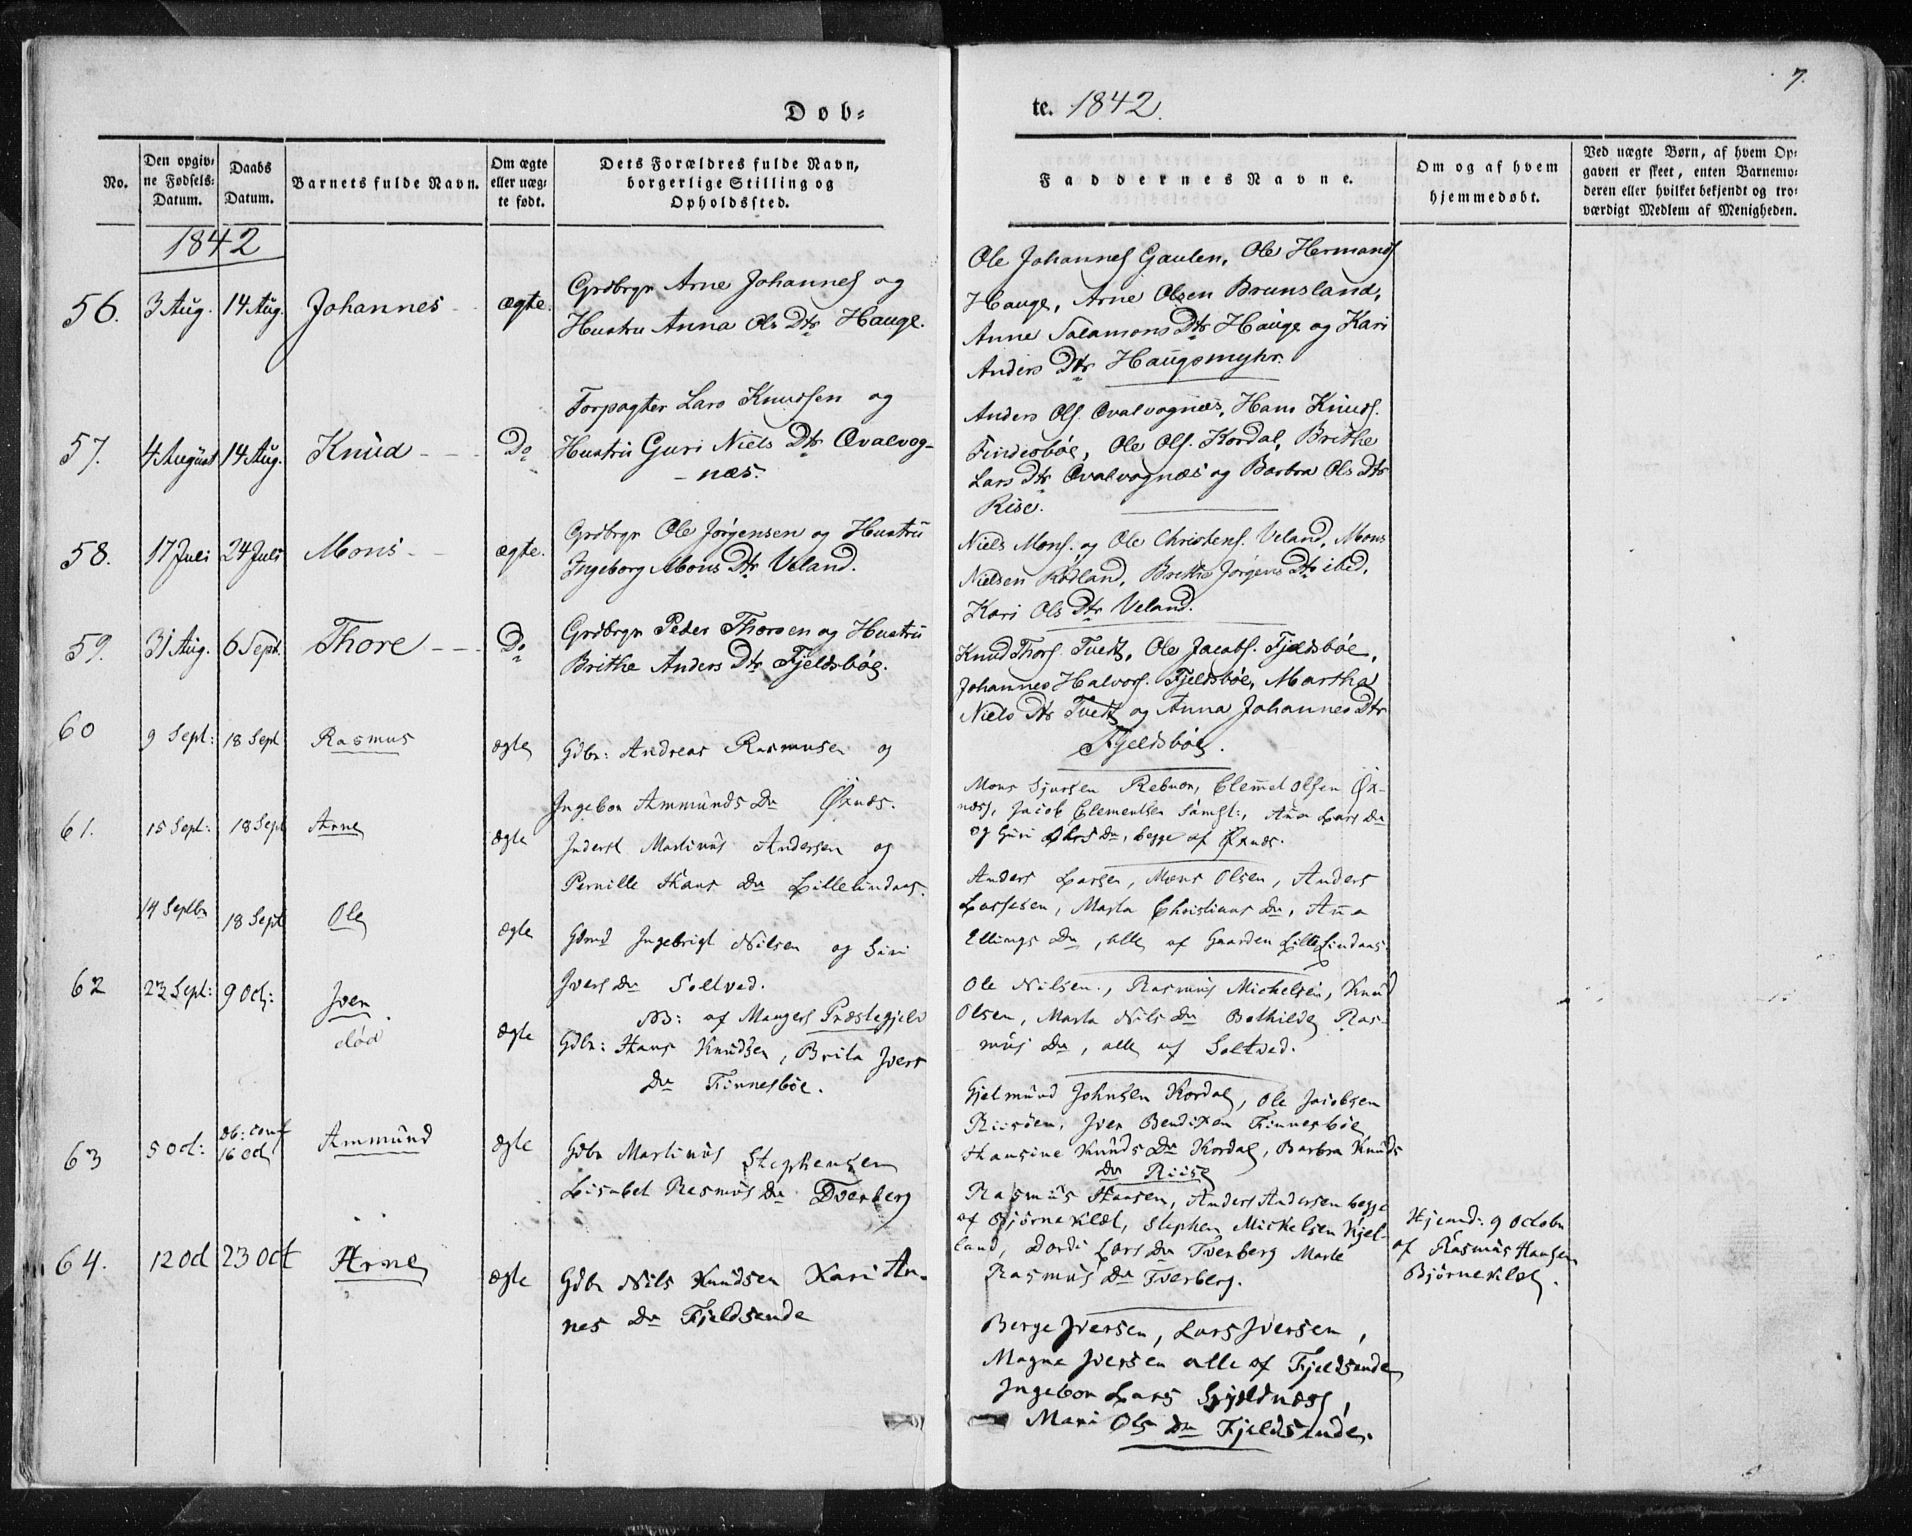 7.
Døb-
te. 1842.
No.
Den opgiv-
ne Fødsels-
Datum.
Daabs
Datum.
Barnets fulde Navn.
Om ægte
eller uæg-
te født.
Dets Forældres fulde Navn,
borgerlige Stilling og
Opholdssted.
Faddernes Navne.
Om og af hvem
hjemmedøbt.
Ved uægte Børn, af hvem Op-
gaven er skeet, enten Barnemo-
deren eller hvilket bekjendt og tro-
værdigt Medlem af Menigheden.
1842
56. 3 Aug. 14 Aug. Johannes ægte.
Grdbrgr Arne Johannes og
Hustru Anna Ols Dtr Hauge.
Ole Johannes Gaulen, Ole Hermands
Hauge, Arne Olsen Brunsland,
Anne Salamons Dtr Hauge og Kari
Anders Dtr Haugsmyhr.
57. 4 August 14 Aug. Knud Do
Forpagter Lars Knudsen og
Hustru Guri Niels Dtr Qvalvog-
næs.
Anders Ols. Qvalvognæs, Hans Knuds.
Findesbøe, Ole Ols. Kordal, Brithe
Lars Dtr Qvalvognæs og Barbra Ols Dtr
Rise.
58. 17 Juli 24 Juli Mons ægte.
Grdbrgr Ole Jørgensen og Hustru
Ingeborg Mons Dtr Veland.
Niels Mons. og Ole Christens. Veland, Mons
Nielsen Rødland, Brithe Jørgens Dtr ibed,
Kari Ols Dtr Veland.
59. 31 Aug. 6 Sept. Thore Do
Grdbrgr Peder Thorsen og Hustru
Brithe Anders Dtr Fjeldsbøe.
Knud Thors. Tvedt, Ole Jacobs. Fjeldsbøe,
Johannes Halvors. Fjeldsbøe, Martha
Niels Dtr Tvedt og Anna Johannes Dtr
Fjeldsbøe.
60 9 Sept: 18 Sept Rasmus ægte
Gdbr: Andreas Rasmusen og
Ingebor Ammunds Dr Øxnæs.
Mons Sjursen Rebnor, Clemmet Olsen Øx-
næs, Jacob Clementsen Samst:, Anna Lars Dr
og Guri Ohls Dr, begge af Øxnæs.
61. 15 Sept: 18 Sept Arne ægte
Inderst Martinus Andersen og
Pernille Hans Dr Lillelindaas.
Anders Larsen, Mons Olsen, Anders
Lassesen, Marta Christians Dr, Anna
Ellings Dr, alle af Gaarden Lille Lindaas.
14 Septbr 18 Sept Ole ægte
Gdmd Ingebrigt Nilsen og Siri
Ivers Dr Soltved.
NB: af Mangers Præstegjeld
Ole Nilsen, Rasmus Michelsen, Knud
Olsen, Marta Nils Dr Bothilde Ras-
mus Dr, alle af Soltved.
62 23 Sept: 9 Oct: Iver ægte
død
Gdbr: Hans Knudsen, Brita Ivers
Dr Finnesbøe.
Gjelmund Johnsen Kordal, Ole Jacobsen
Riisøen, Iver Bendixen Finnesbøe
Hansine Knuds Dr Kordal, Barbra Knuds
Dr Riise
63 5 Oct: Db: conf
16 Oct Ammund ægte
Gdbr Martinus Stephensen
Lisabet Rasmus Dr Tverberg
Rasmus Hansen, Anders Andersen begge
af Bjørneklæt, Stephen Mickelsen Kjel-
land, Dordi Lars Dr Tverberg Marte
Rasmus Dr Tverberg.
Hjemd: 9 Octobr
af Rasmus Hansen
Bjørneklæt.
64. 12 Oct 23 Oct Arne ægte
Gdbr Nils Knudsen Kari An-
nes Dr Fjeldsende
Berge Iversen, Lars Iversen,
Magne Iversen alle af Fjeldsende
Ingebor Lars Gjeldnæss,
Mari Ols Dr Fjeldsende.